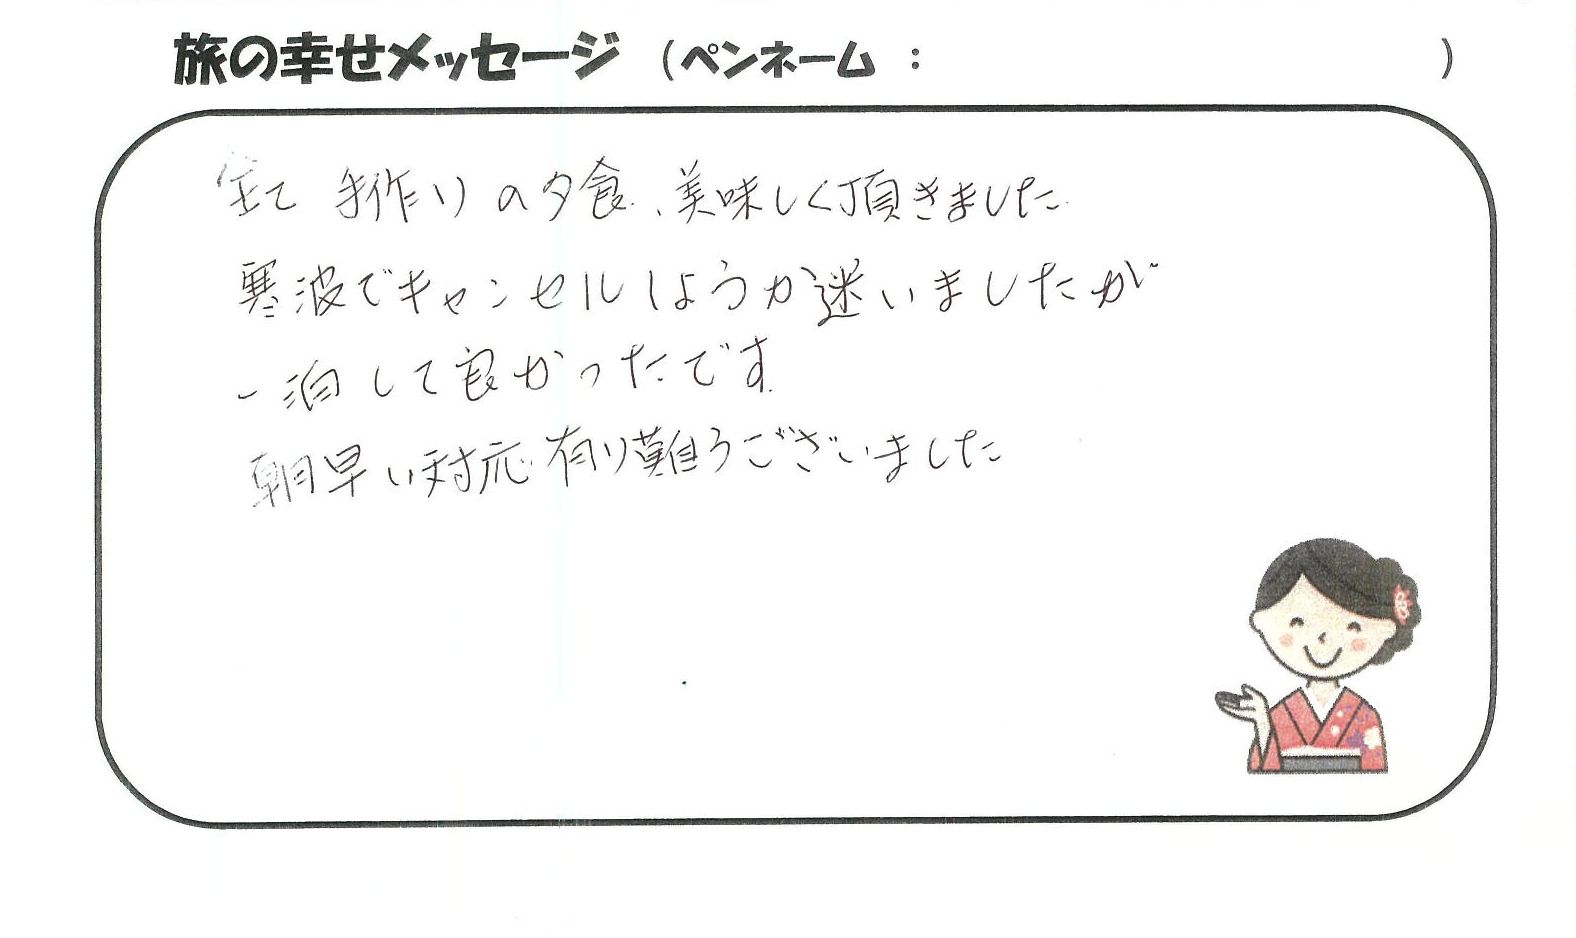 旅の幸せメッセージ (ペンネーム : )
全て 手作りの夕食、美味しく頂きました
寒波でキャンセルしようか迷いましたが
一泊して良かったです
朝早い対応 有り難うございました